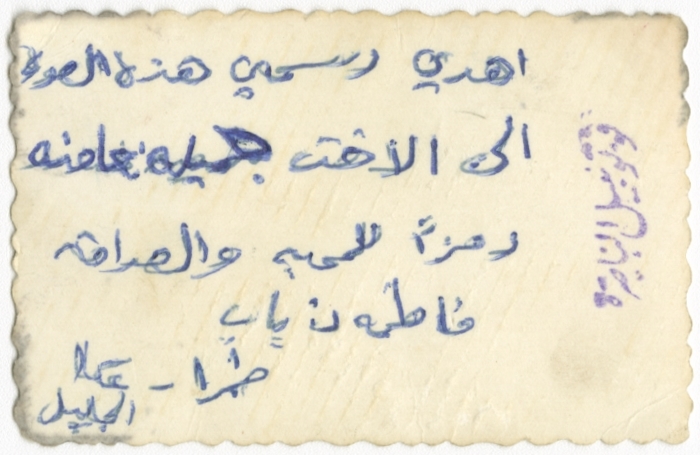 اهدي رسمي هذه الصورة
الى الاخت جميله
رمزاً للمحبه والصداقه
فاطمه ذياب
طمرا - عكا
الجليل